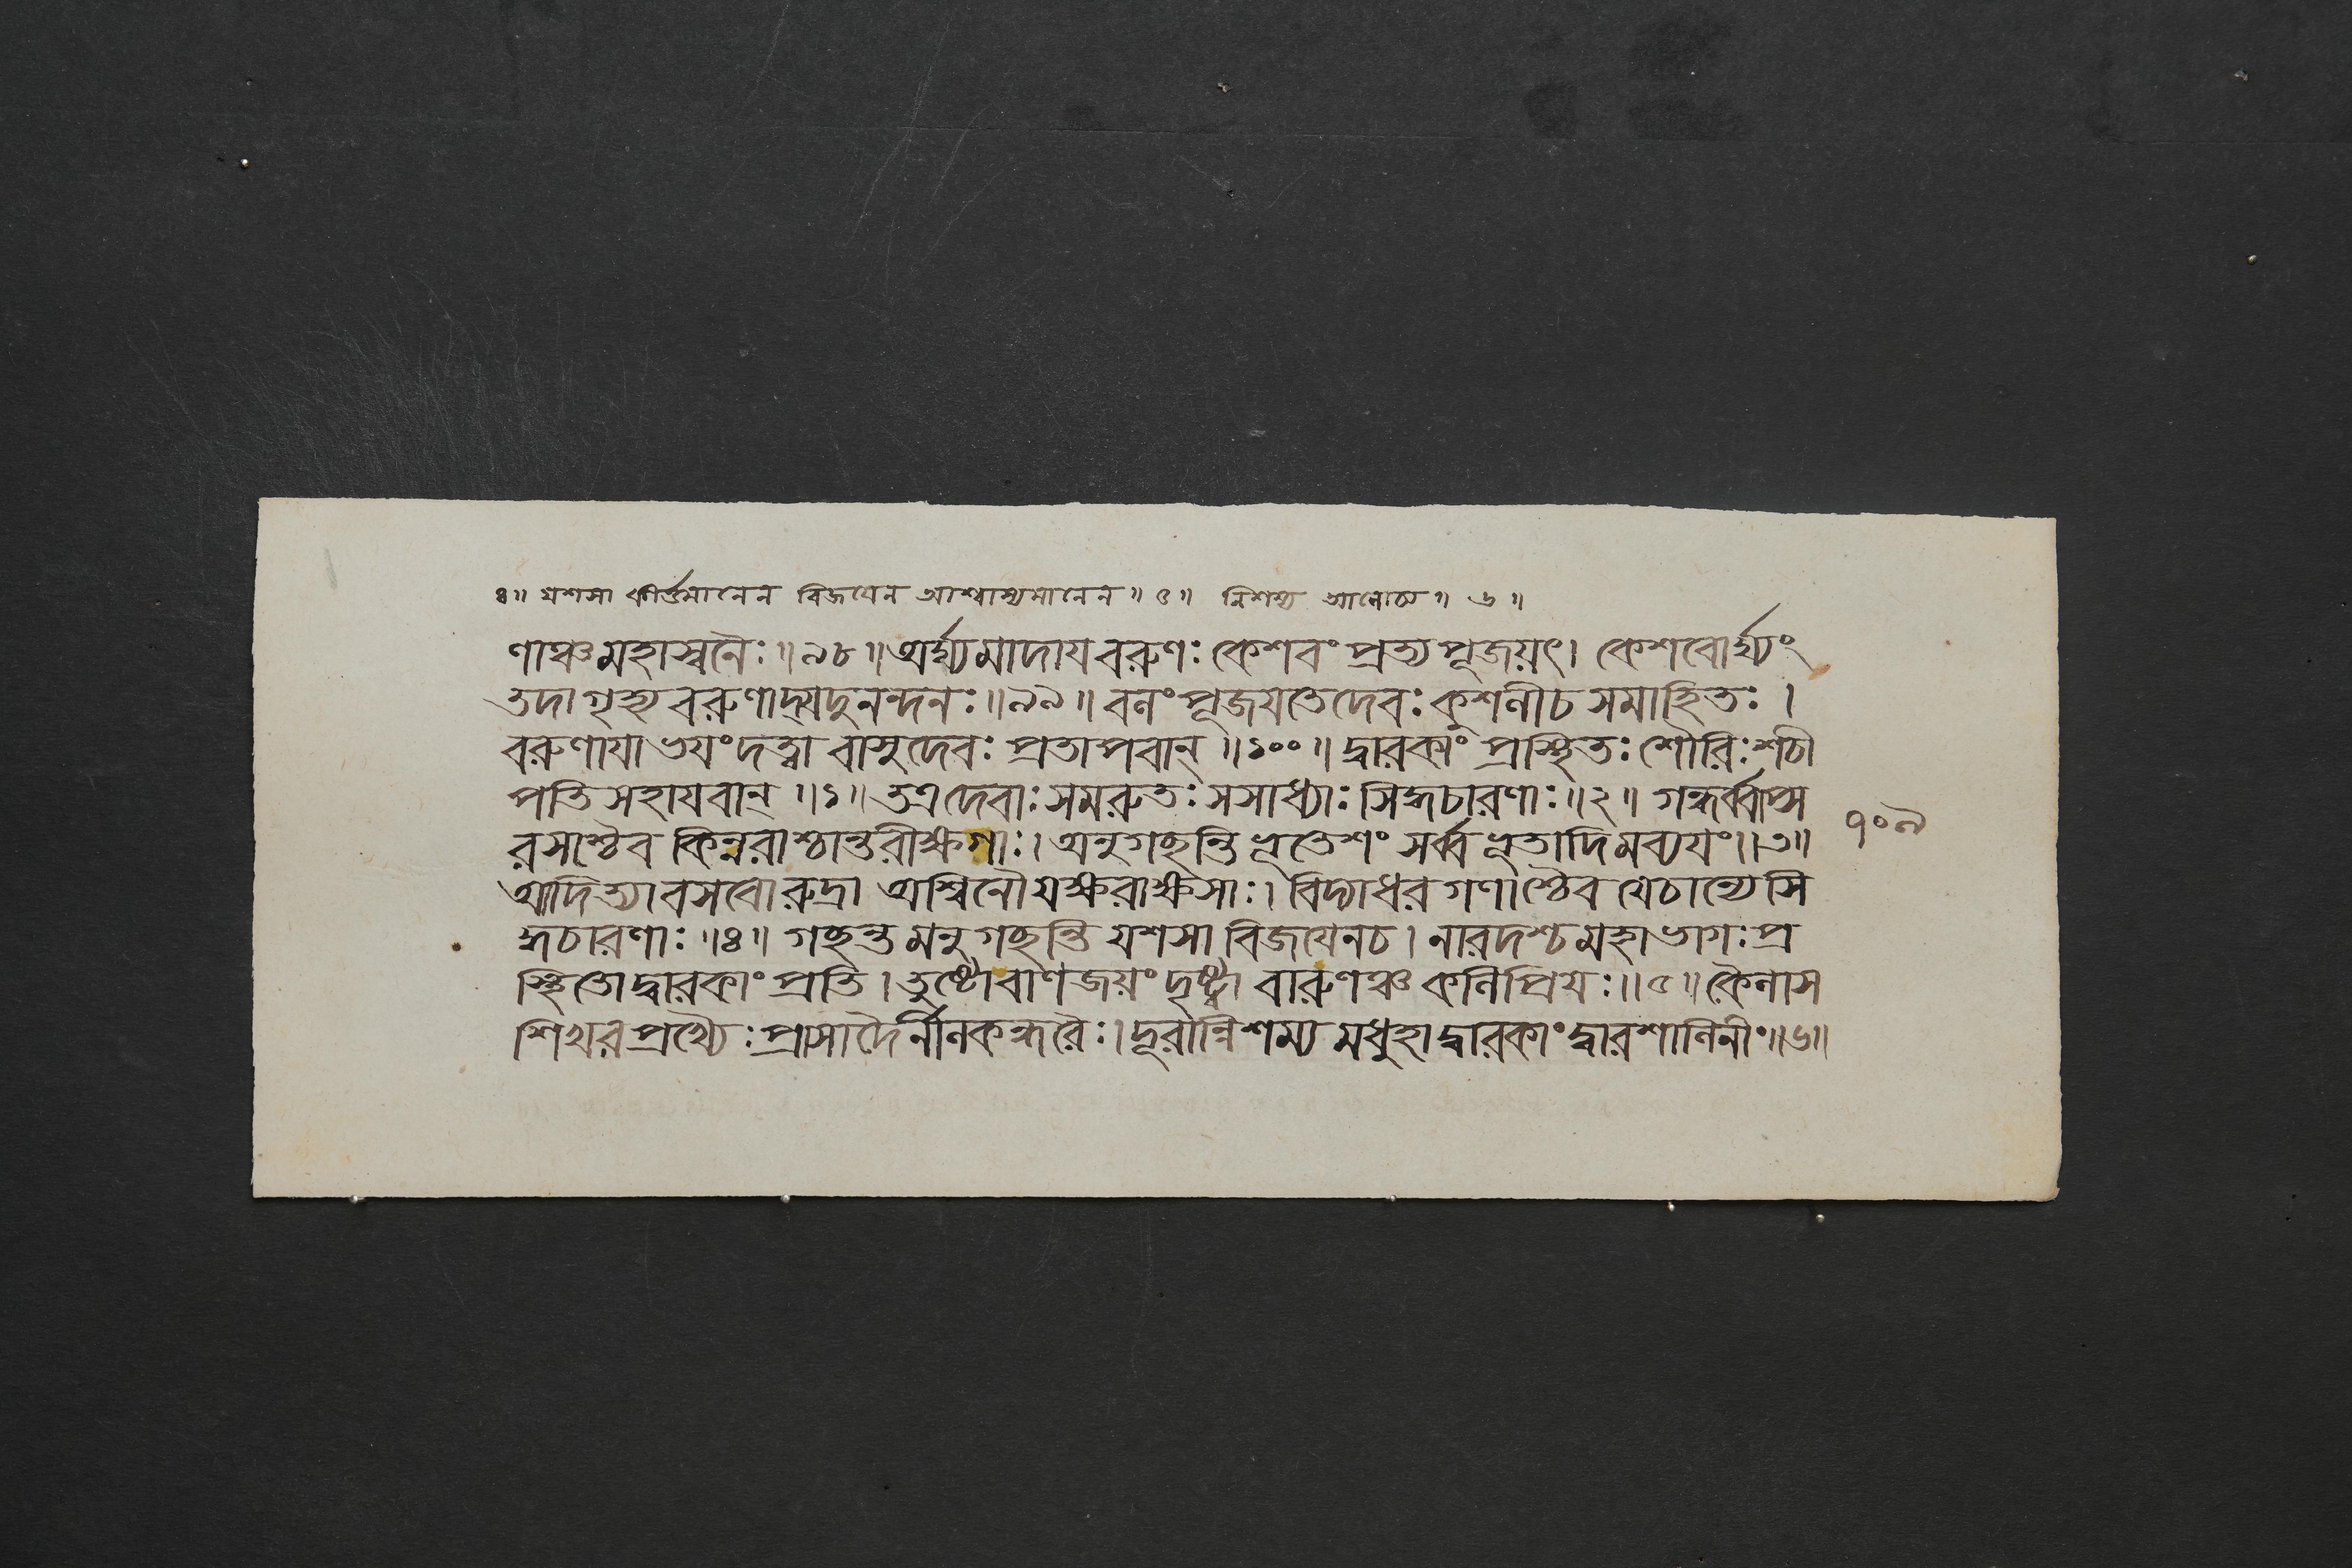 ৪॥ যশসা কীর্ত্তমানেন বিজয়েন আশ্বাস্যমানেন॥ ৫॥ নিশম্য আলোচ্য॥ ৬॥
ণাঞ্চমহাস্বনৈঃ॥৯৮॥অর্ঘ্যমাদাযবরুণঃ কেশবং প্রত্যপূজয়ৎ। কেশবোর্ঘ্যং
তদাগৃহ্য বরুণাদ্যদুনন্দনঃ॥৯৯॥ বলং পূজযতেদেবঃ কুশলীচ সমাহিতঃ।
বরুণাযাভযংদত্ত্বা বাসুদেবঃ প্রতাপবান্॥১০০॥ দ্বারকাং প্রস্থিতঃ শৌরিঃশচী
পতিসহাযবান্॥১॥ তত্রদেবাঃসমরুতঃ সসাধ্যাঃ সিদ্ধচারণাঃ॥২॥ গন্ধর্ব্বাপ্স
রসাশ্চৈব কিন্নরাশ্চান্তরীক্ষগাঃ। অনুগচ্ছন্তি ভূতেশং সর্ব্বভূতাদিমব্যযং॥৩॥
আদিত্যাবসবোরুদ্রা অশ্বিনৌযক্ষরাক্ষসাঃ। বিদ্যাধরগণাশ্চৈব যেচান্যে সি
দ্ধচারণাঃ॥৪॥ গচ্ছন্তমনুগচ্ছন্তি যশসা বিজযেনচ। নারদশ্চমহাভাগঃ প্র
স্থিতোদ্বারকাং প্রতি। তুষ্টোবাণজয়ং দৃষ্ট্বা বারুণঞ্চ কলিপ্রিযঃ॥৫॥ কৈলাস
শিখরপ্রখ্যৈঃ প্রাসাদৈর্নীলকন্ধরৈঃ। দূরান্নিশম্য মধুহাদ্বারকাং দ্বারশালিনীং॥৬॥
৭০৯